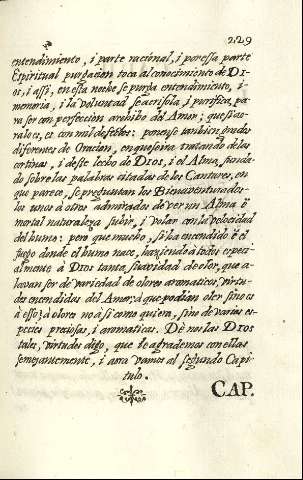 229
entendimiento, i parte racional, i por essa parte
Espiritual purgacion toca al conocimiento de DI-
OS, i assi, en esta noche se purga entendimiento, i
memoria, i la voluntad se acrisola, i purifica, pa-
ra ser con perfeccion archivo del Amor; que si ao-
ra lo es, es con mil defectos: ponense tambien grados
diferenes de Oracion, en que se ira tratando de las
cortinas, i deste lecho de DIOS, i el Alma, funda-
do sobre las palabras citadas de los Cantares, en
que parece, se preguntan los Bienaventurados
los unos à otros admirados de ver un Alma ē
mortal naturaleza subir, i volar con la velocidad
del humo: pero que mucho, si ha encendido ē el
fuego donde el humo nace, haziendo à todos especi-
almente à DIOS tanta, suavidad de olor, que a-
lavan ser de variedad de olores aromaticos, virtu-
des encendidos del Amor; à que podian oler sino es
à esso; à olores no à si como quiera, sino de varias es-
pecies preciosas, i aromaticas. Dènos las DIOS
tales, virtudes digo, que le agrademos con ellas
semejantemente, i aora vamos al segundo Capi-
tulo.
CAP.